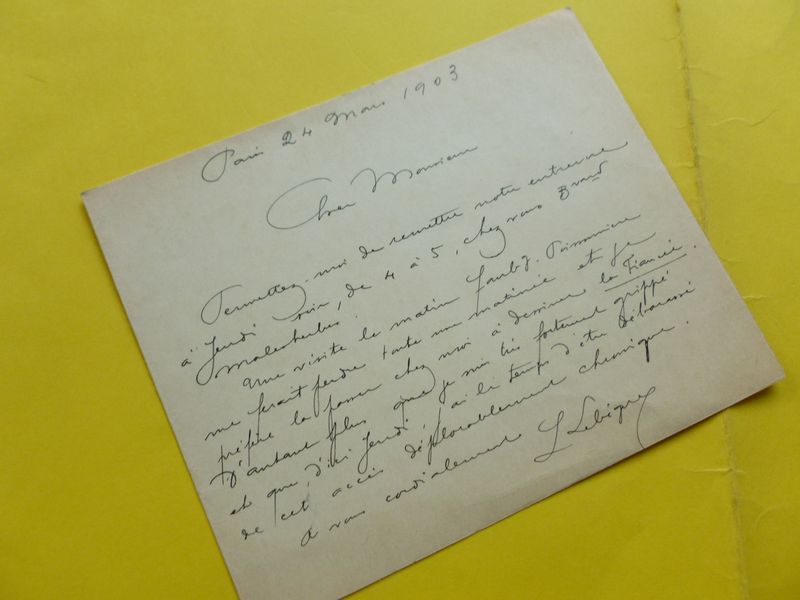 Paris 24 Mars 1903
Cher Monsieur
Permettez-moi de remettre notre entrevue
à Jeudi soir, de 4 à 5, chez vous Bvard
Malesherbes.
Une visite le matin faubg. Poissonnière
me ferait perdre toute une matinée et je
préfère la passer chez moi à dessiner la Fiancée.
D'autant plus que je suis très fortement grippé
et que, d'ici Jeudi, j'ai le temps d'être débarassé
de cet accès déplorablement chronique.
A vous cordialement L Lebègue